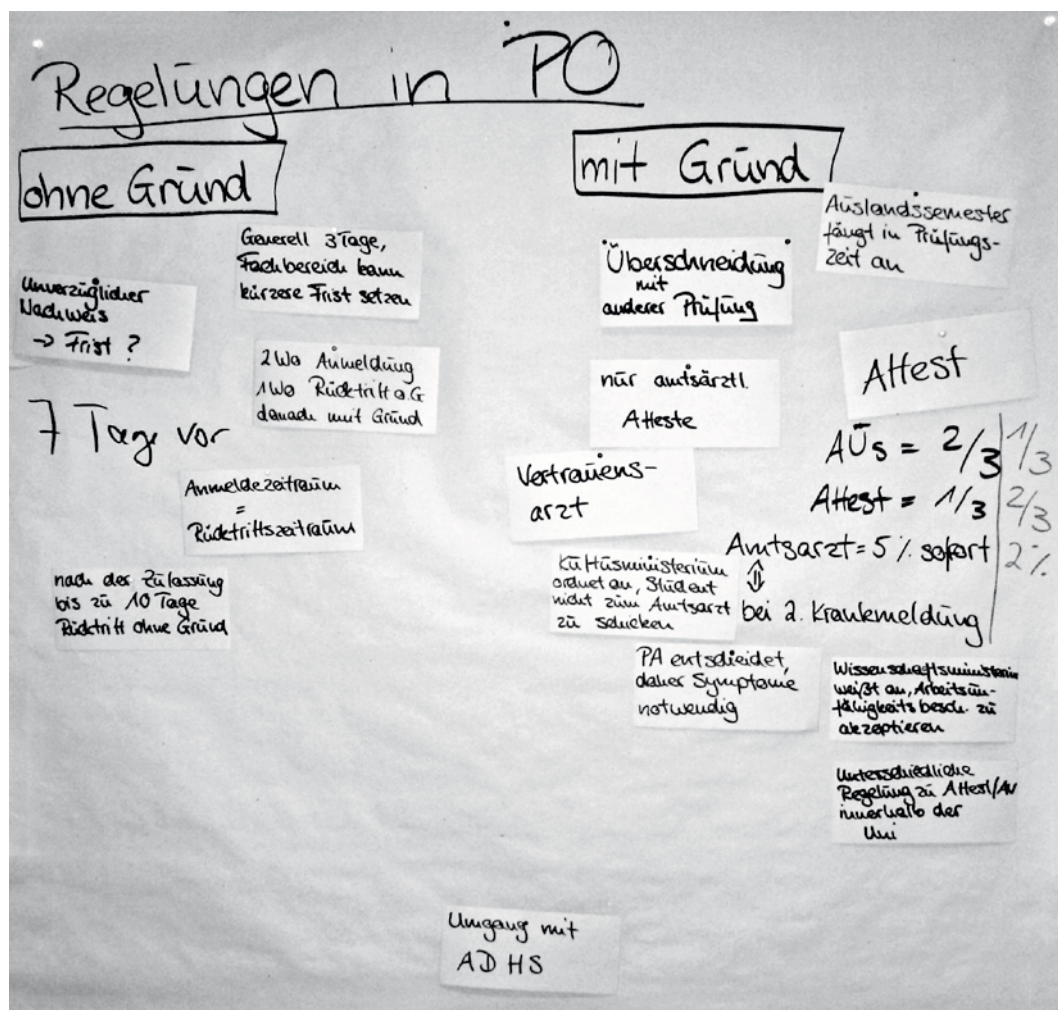 Regelungen in PO
ohne Grund
Unverzüglicher
Nachweis
-> Frist ?
Generell 3 Tage,
Fachbereich kann
kürzere Frist setzen
2 Wo Anmeldung
1 Wo Rücktritt o.G
danach mit Grund
7 Tage vor
Anmeldezeitraum
=
Rücktrittszeitraum
nach der Zulassung
bis zu 10 Tage
Rücktritt ohne Grund
mit Grund
Auslandssemester
fängt in Prüfungs-
zeit an
Überschneidung
mit
anderer Prüfung
Attest
nur amtsärztl.
Atteste
Vertrauens-
arzt
AUs = 2/3 1/3
Attest = 1/3 2/3
Amtsarzt = 5 % sofort 2 %
⇕
bei 2. Krankmeldung
Kultusministerium
ordnet an, Student
nicht zum Amtsarzt
zu schicken
PA entscheidet,
daher Symptome
notwendig
Wissenschaftsministerin
weißt an, Arbeitsun-
fähigkeitsbesch. zu
akzeptieren
Unterschiedliche
Regelung zu Attest/AU
innerhalb der
Uni
Umgang mit
ADHS